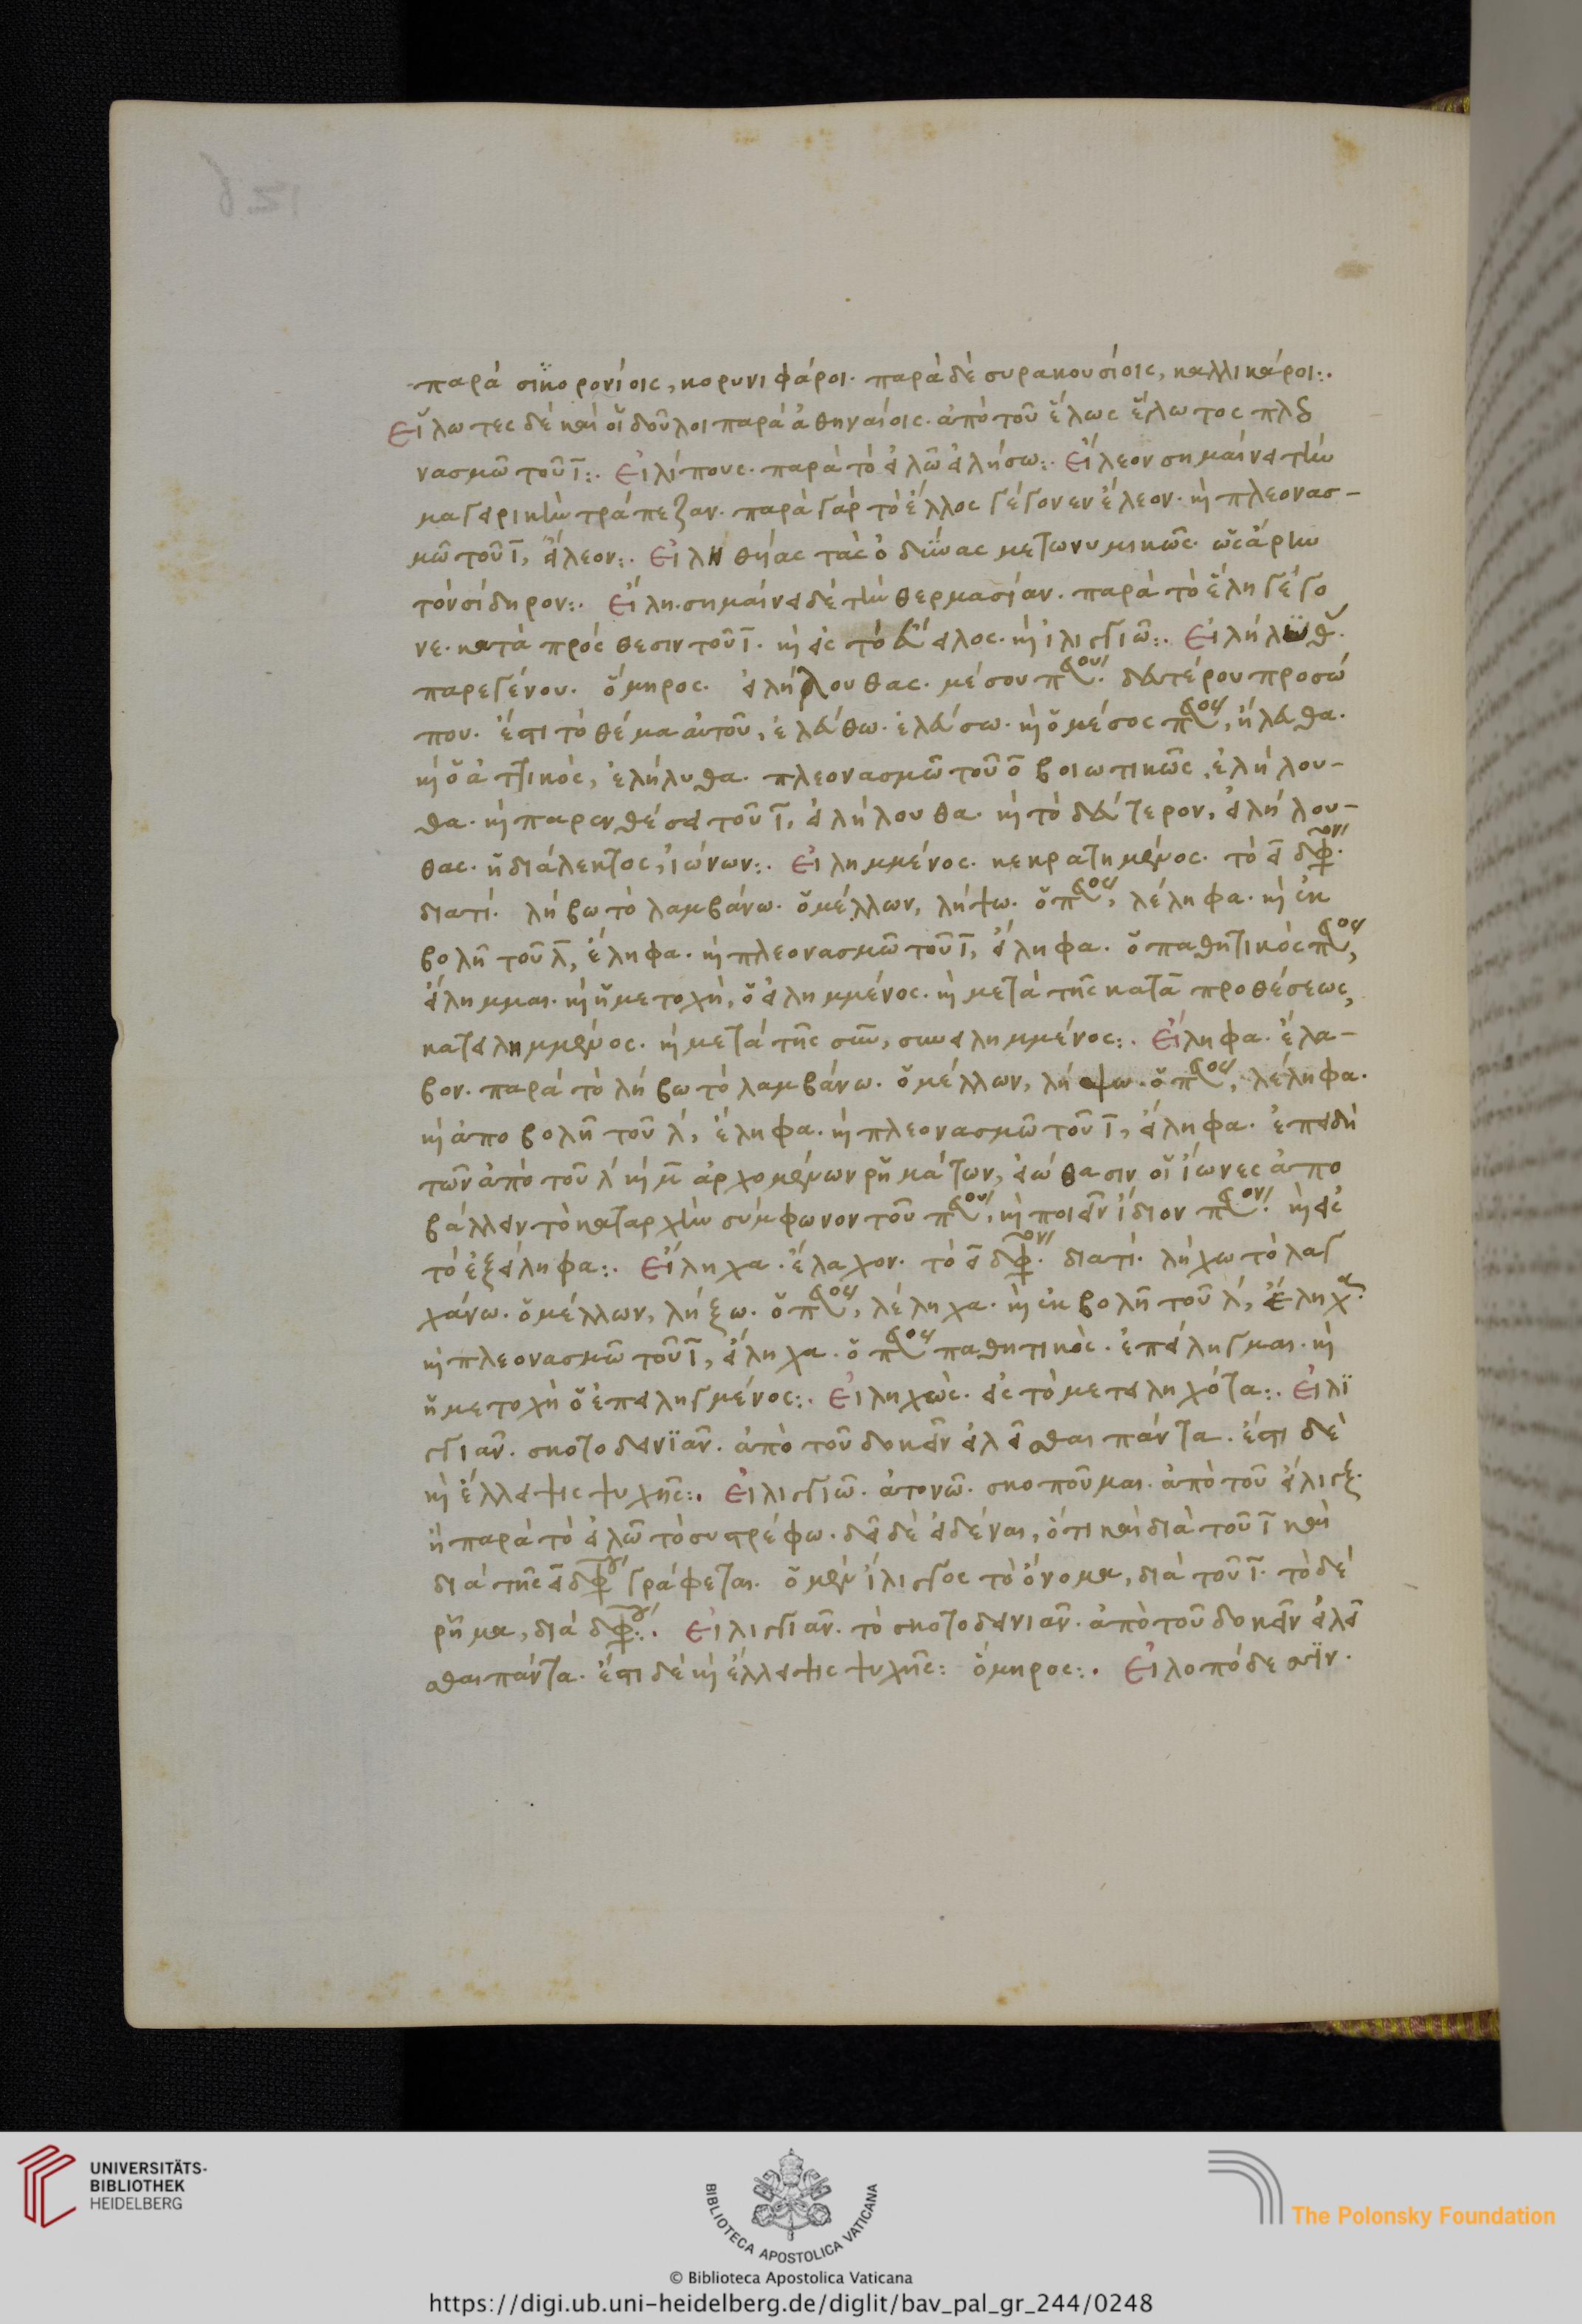 παρὰ σικορονίοις, κορυνιφάροι. παρὰ δὲ συρακουσίοις, καλλικάροι:.
Εἵλωτες δὲ καὶ οἱ δοῦλοι παρὰ ἀθηναίοις. ἀπὸ τοῦ ἕλως ἕλωτος πλο
νασμῶ τοῦ ῑ:. Εἰλίπους. παρὰ τὸ εἰλῶ εἰλήσω:. Εἴλεον σημαίνει τὴν
μαγειρικὴν τράπεζαν. παρὰ γὰρ τὸ ἔλλος γέγονεν ἔλεον. κὶ πλεονασ-
μῶ τοῦ ῑ, εἴλεον:. Εἰληθήας τὰς ὀδύνας μετωνυμικῶς. ὡς ἄρην
τὸν σίδηρον:. Εἴλη. σημαίνει δὲ τὴν θερμασίαν. παρὰ τὸ ἕλη γέγο
νε. κατὰ πρόσθεσιν τοῦ ῑ. κὶ εἰς τὸ εὔειλος. κὶ ἰλιγγιῶ:. Εἰλήλουθ.
παρεγένου. ὅμηρος. εἰλήλουθας. μέσου πκου. δευτέρου προσώ
που. ἔστι τὸ θέμα αὐτοῦ, ἐλεύθω. ἐλεύσω. κὶ ὁ μέσος πκος, ἤλευθα.
κὶ ὁ ἀττικὸς, ἐλήλυθα. πλεονασμῶ τοῦ ο̄ βοιωτικῶς, ἐλήλου-
θα. κὶ παρενθέσει τοῦ ῑ, εἰλήλουθα. κὶ τὸ δεύτερον, εἰλήλου-
θας. ἡ διάλεκτος, ἰώνων:. Εἰλημμένος. κεκρατημένος. τὸ ει δφον.
διατί. λήβω τὸ λαμβάνω. ὁ μέλλων, λήψω. ὁ πκος, λέληφα. κὶ ἐκ
βολῆ τοῦ λ̄, ἔληφα. κὶ πλεονασμῶ τοῦ ῑ, εἴληφα. ὁ παθητικὸς πκος,
εἴλημμαι. κὶ ἡ μετοχὴ, ὁ εἰλημμένος. κὶ μετὰ τῆς κατὰ προθέσεως,
κατειλημμένος. κὶ μετὰ τῆς σὺν, συνειλημμένος:. Εἴληφα. ἔλα-
βον. παρὰ τὸ λήβω τὸ λαμβάνω. ὁ μέλλων, λήψω. ὁ πκος, λέληφα.
κὶ ἀποβολῆ τοῦ λ, ἔληφα. κὶ πλεονασμῶ τοῦ ῑ, εἴληφα. ἐπειδὴ
τῶν ἀπὸ τοῦ λ κὶ μ̄ ἀρχομένων ρημάτων, εἰώθασιν οἱ ἴωνες ἀπο
βάλλειν τὸ καταρχὴν σύμφωνον τοῦ πκου, κὶ ποιεῖν ἴδιον πκον. κὶ εἰς
τὸ ἐξείληφα:. Εἴληχα. ἔλαχον. τὸ ει δφον. διατί. λήχω τὸ λαγ
χάνω. ὁ μέλλων, λήξω. ὁ πκος, λέληχα. κὶ ἐκβολῆ τοῦ λ, ἔληχα.
κὶ πλεονασμῶ τοῦ ῑ, εἴληχα. ὁ πκος παθητικὸς. ἐπείληγμαι. κὶ
ἡ μετοχὴ ὁ ἐπειληγμένος:. Εἰληχὼς. εἰς τὸ μετειληχότα:. Εἰλι
γγιᾶν. σκοτοδεινιᾶν. ἀπὸ τοῦ δοκεῖν εἰλεῖσθαι πάντα. ἔστι δὲ
κὶ ἔλλειψις ψυχῆς:. Εἰλιγγιῶ. ἀτονῶ. σκοποῦμαι. ἀπὸ τοῦ εἴλιγξ.
ἢ παρὰ τὸ εἰλῶ τὸ συστρέφω. δεῖ δὲ εἰδέναι, ὅτι καὶ διὰ τοῦ ῑ καὶ
διὰ τῆς ει δφου γράφεται. ὁ μὲν ἴλιγγος τὸ ὄνομα, διὰ τοῦ ῑ. τὸ δὲ
ρῆμα, διὰ δφου:. Εἰλιγγιᾶν. τὸ σκοτοδεινιᾶν. ἀπὸ τοῦ δοκεῖν εἰλεῖ
σθαι πάντα. ἔστι δὲ κὶ ἔλλειψις ψυχῆς: ὅμηρος:. Εἰλοπόδεσσιν.
UNIVERSITÄTS-
BIBLIOTHEK
HEIDELBERG
BIBLIOTECA APOSTOLICA VATICANA
The Polonsky Foundation
© Biblioteca Apostolica Vaticana
https://digi.ub.uni-heidelberg.de/diglit/bav_pal_gr_244/0248